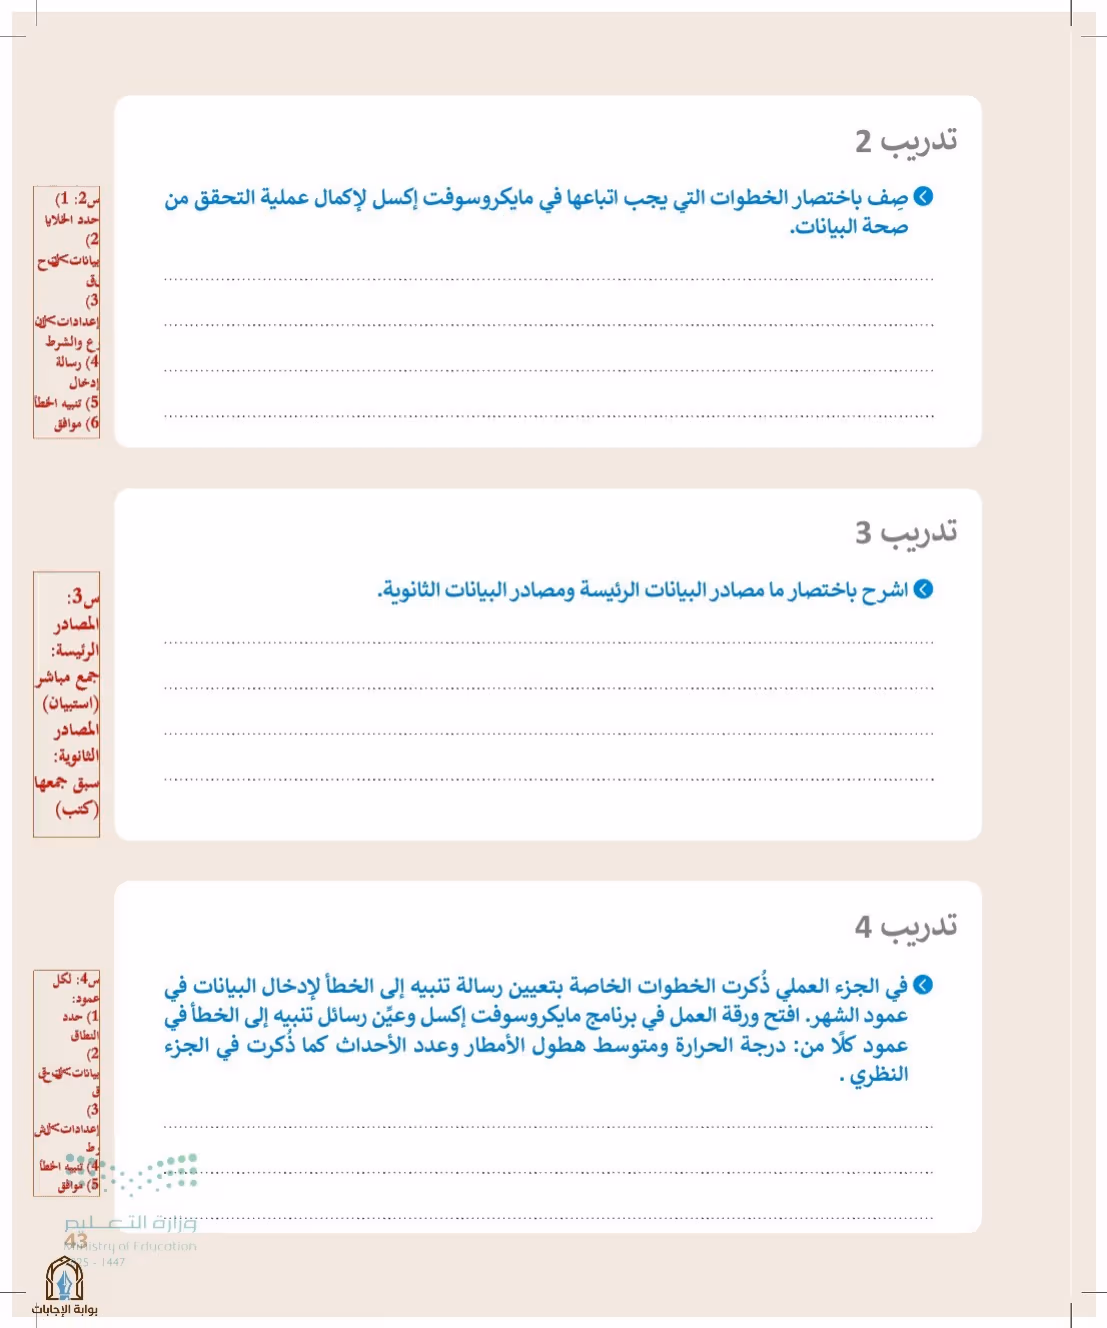 تدريب 2
صِف باختصار الخطوات التي يجب اتباعها في مايكروسوفت إكسل لإكمال عملية التحقق من
صحة البيانات.
س2: 1)
حدد الخلايا
2)
3)
رع والشرط
4) رسالة
إدخال
5) تنبيه الخطأ
6) موافق
تدريب 3
اشرح باختصار ما مصادر البيانات الرئيسة ومصادر البيانات الثانوية.
س3:
المصادر
الرئيسة:
جمع مباشر
(استبيان)
المصادر
الثانوية:
سبق جمعها
(كتب)
تدريب 4
في الجزء العملي ذُكرت الخطوات الخاصة بتعيين رسالة تنبيه إلى الخطأ لإدخال البيانات في
عمود الشهر. افتح ورقة العمل في برنامج مايكروسوفت إكسل وعيِّن رسائل تنبيه إلى الخطأ في
عمود كلًا من: درجة الحرارة ومتوسط هطول الأمطار وعدد الأحداث كما ذُكرت في الجزء
النظري .
س4: لكل
عمود:
1) حدد
النطاق
2)
3)
رط
4) تنبيه الخطأ
5) موافق
وزارة التعليم
43
Ministry of Education
1447
بوابة الإجابات